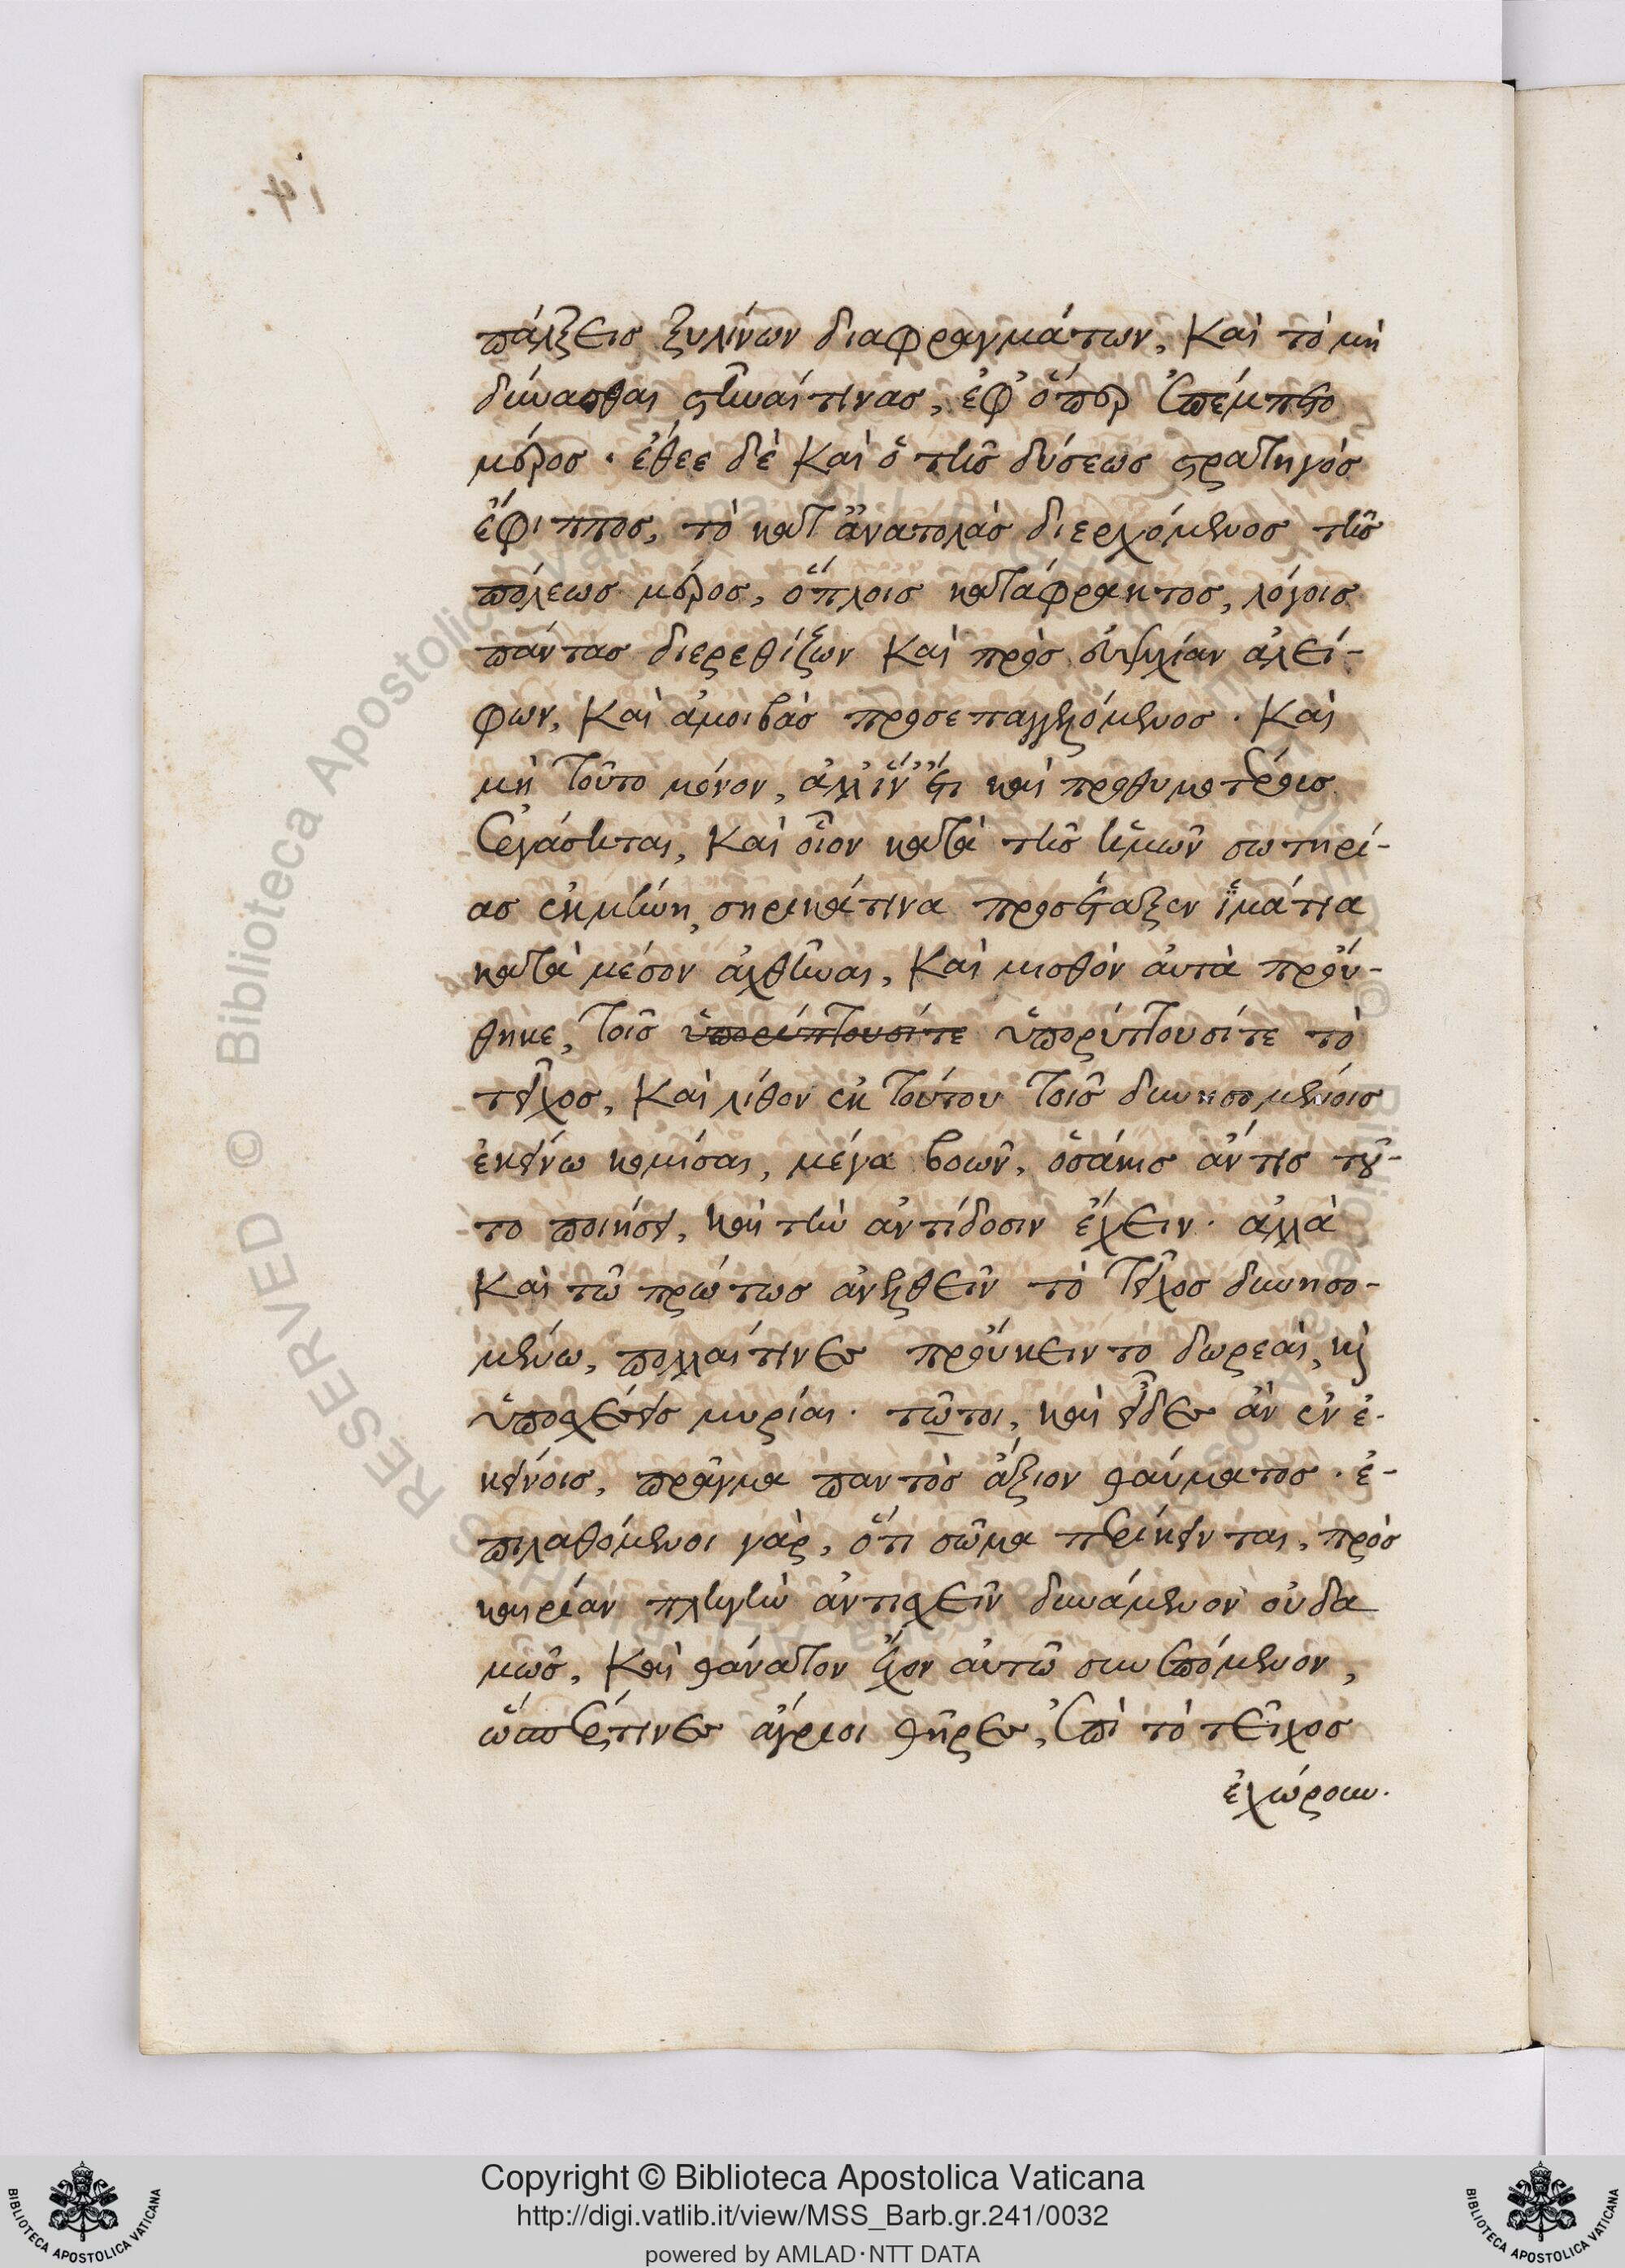 πάλξεις ξυλίνων διαφραγμάτων, καὶ τὸ μὴ
δύνασθαι στῆναί τινας, ἐφ' ὅπερ ἐπέμπετο
μέρος. ἔθεε δὲ καὶ ὁ τῆς δύσεως στρατηγὸς
ἔφιππος, τὸ κατ' ἀνατολὰς διερχόμενος τῆς
πόλεως μέρος, ὅπλοις κατάφρακτος, λόγοις
πάντας διερεθίζων καὶ πρὸς εὐψυχίαν ἀλεί-
φων, καὶ ἀμοιβὰς προσεπαγγελόμενος. καὶ
μὴ τοῦτο μόνον, ἀλλ' ἵν' ἔτι καὶ προθυμοτέρους
ἐργάσηται, καὶ οἷον κατὰ τῆς ἡμῶν σωτηρί-
ας ἐκμήνῃ, σηρικά τινα προσέταξεν ἱμάτια
κατὰ μέσον ἀχθῆναι, καὶ μισθὸν αὐτὰ προὔ-
θηκε, τοῖς ὑπορύπτουσί τε ὑπορύττουσί τε τὸ
τεῖχος, καὶ λίθον ἐκ τούτου τοῖς δυνησομένοις
ἐκείνω κομίσαι, μέγα βοῶν, ὁσάκις ἄν τις τοῦ-
το ποιήσει, καὶ τὴν ἀντίδοσιν ἔχειν. ἀλλὰ
καὶ τῶ πρώτως ἀνελθεῖν τὸ τεῖχος δυνησο-
μένω, πολλαί τινες προὔκειντο δωρεαὶ, καὶ
ὑποσχέσεις μυρίαι. τῶτοι, καὶ εἶδες ἂν ἐν ἐ-
κείνοις, πρᾶγμα παντὸς ἄξιον θαύματος. ἐ-
πιλαθόμενοι γὰρ, ὅτι σῶμα περίκεινται, πρὸς
καιρίαν πληγὴν ἀντισχεῖν δυνάμενον οὐδα
μῶς, καὶ θάνατον ἔχον αὐτῶ συνεπόμενον,
ὥσπέρ τινες ἄγριοι θῆρες, ἐπὶ τὸ τεῖχος
ἐχώρουν.
RESERVED © Biblioteca Apostolica Vaticana
Copyright © Biblioteca Apostolica Vaticana
http://digi.vatlib.it/view/MSS_Barb.gr.241/0032
powered by AMLAD·NTT DATA
BIBLIOTECA APOSTOLICA VATICANA
BIBLIOTECA APOSTOLICA VATICANA